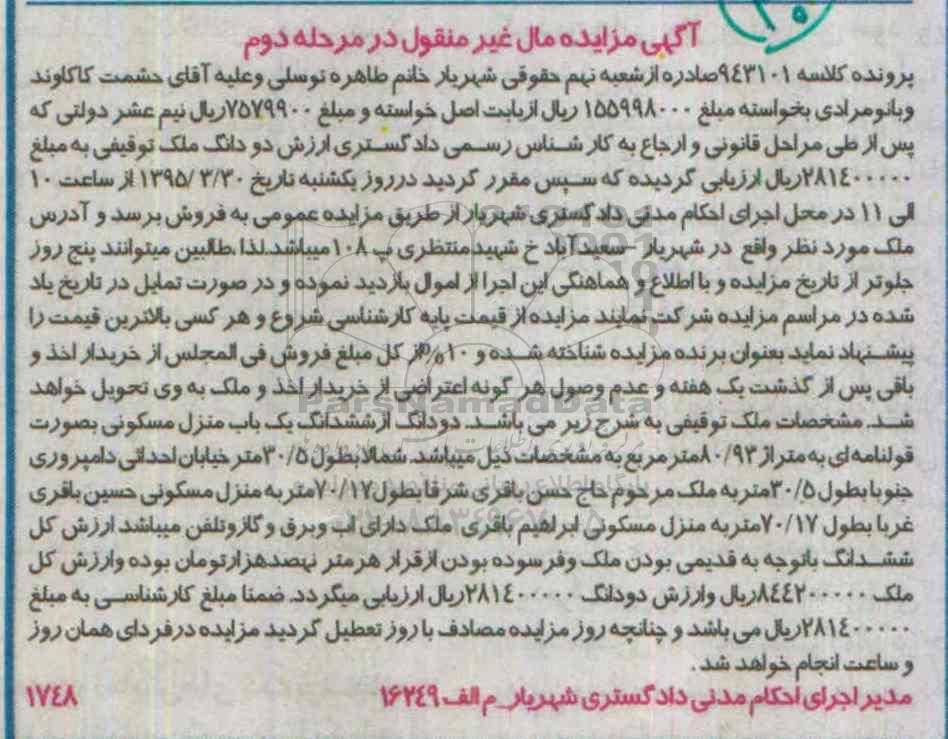 ۲۰
آگهی مزایده مال غیر منقول در مرحله دوم
پرونده کلاسه ۹۴۳۱۰۱صادره ازشعبه نهم حقوقی شهریار خانم طاهره توسلی وعلیه آقای حشمت کاکاوند
وبانومرادی بخواسته مبلغ ۱۵۵۹۹۸۰۰۰ ریال ازبابت اصل خواسته و مبلغ ۷۵۷۹۹۰۰ریال نیم عشر دولتی که
پس از طی مراحل قانونی و ارجاع به کار شناس رسمی دادگستری ارزش دو دانگ ملک توقیفی به مبلغ
۲۸۱۴۰۰۰۰۰ریال ارزیابی گردیده که سپس مقرر گردید درروز یکشنبه تاریخ ۱۳۹۵/۳/۳۰ از ساعت ۱۰
الی ۱۱ در محل اجرای احکام مدنی دادگستری شهریار از طریق مزایده عمومی به فروش برسد و آدرس
ملک مورد نظر واقع در شهریار -سعیدآباد خ شهیدمنتظری پ ۱۰۸میباشد.لذا،طالبین میتوانند پنج روز
جلوتر از تاریخ مزایده و با اطلاع و هماهنگی این اجرا از اموال بازدید نموده و در صورت تمایل در تاریخ یاد
شده در مراسم مزایده شرکت نمایند مزایده از قیمت پایه کارشناسی شروع و هر کسی بالاترین قیمت را
پیشنهاد نماید بعنوان برنده مزایده شناخته شده و ۱۰%از کل مبلغ فروش فی المجلس از خریدار اخذ و
باقی پس از گذشت یک هفته و عدم وصول هر گونه اعتراضی از خریدار اخذ و ملک به وی تحویل خواهد
شد. مشخصات ملک توقیفی به شرح زیر می باشد. دودانگ ازششدانگ یک باب منزل مسکونی بصورت
قولنامه ای به متراژ ۸۰/۹۳متر مربع به مشخصات ذیل میباشد.شمالابطول ۳۰/۵متر خیابان احداثی دامپروری
جنوبابطول ۳۰/۵متربه ملک مرحوم حاج حسن باقری شرقابطول ۷۰/۱۷متربه منزل مسکونی حسین باقری
غربا بطول ۷۰/۱۷متربه منزل مسکونی ابراهیم باقری ملک دارای اب وبرق و گازوتلفن میباشد ارزش کل
ششدانگ باتوجه به قدیمی بودن ملک وفرسوده بودن ازقرار هرمتر نهصدهزارتومان بوده وارزش کل
ملک ۸۴۴۲۰۰۰۰۰ریال وارزش دودانگ ۲۸۱۴۰۰۰۰۰ریال ارزیابی میگردد. ضمنا مبلغ کارشناسی به مبلغ
۲۸۱۴۰۰۰۰۰ریال می باشد و چنانچه روز مزایده مصادف با روز تعطیل گردید مزایده درفردای همان روز
و ساعت انجام خواهد شد .
مدیر اجرای احکام مدنی دادگستری شهریار_م الف ۱۶۲۴۹ ۱۷۴۸
ParsNamadData